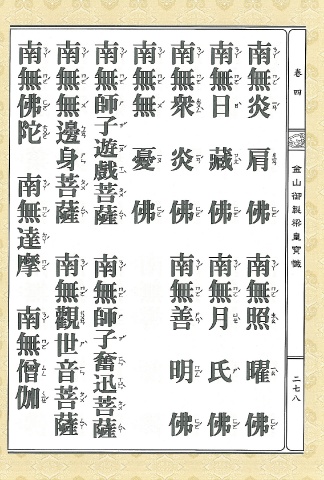 卷四
金山御製梁皇寶懺
二七八
南無炎肩佛 南無照曜佛
南無日藏佛 南無月氏佛
南無眾炎佛 南無善明佛
南無無憂佛
南無師子遊戲菩薩 南無師子奮迅菩薩
南無無邊身菩薩 南無觀世音菩薩
南無佛陀 南無達摩 南無僧伽